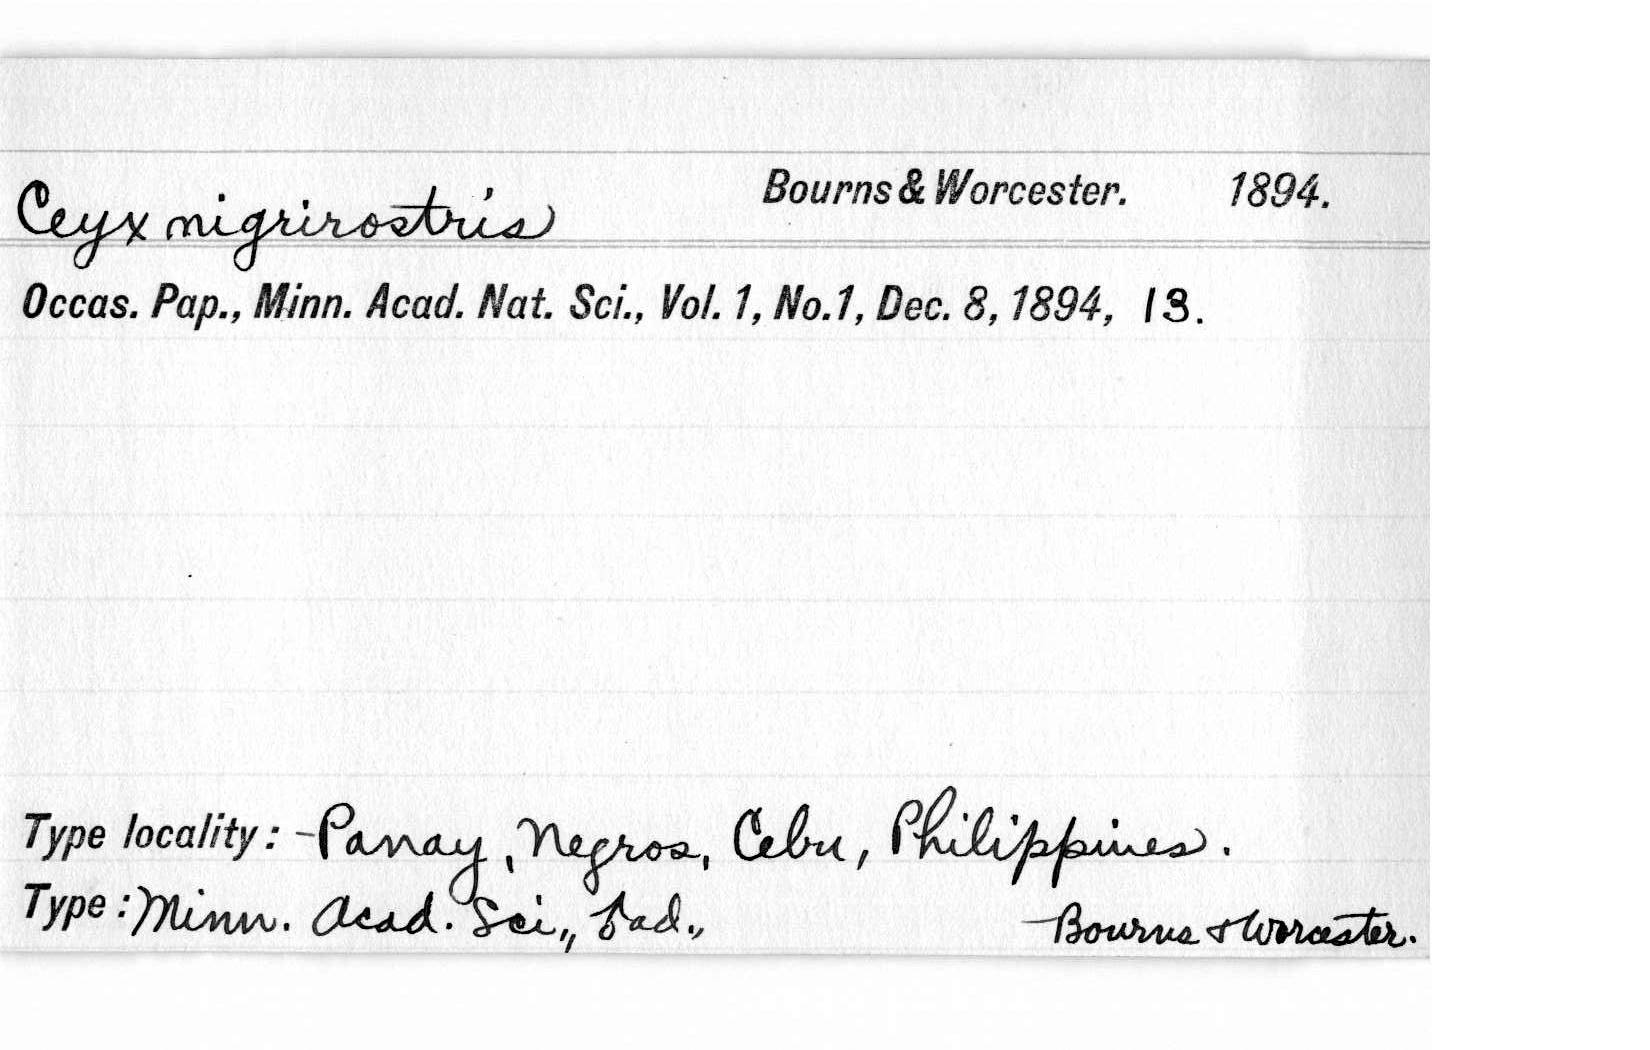 Ceyx nigrirostris Bourns & Worcester. 1894.
Occas. Pap., Minn. Acad. Nat. Sci., Vol. 1, No. 1, Dec. 8, 1894, 13.
Type locality: Panay, Negros, Cebu, Philippines.
Type: Minn. Acad. Sci., ad., Bourns & Worcester.